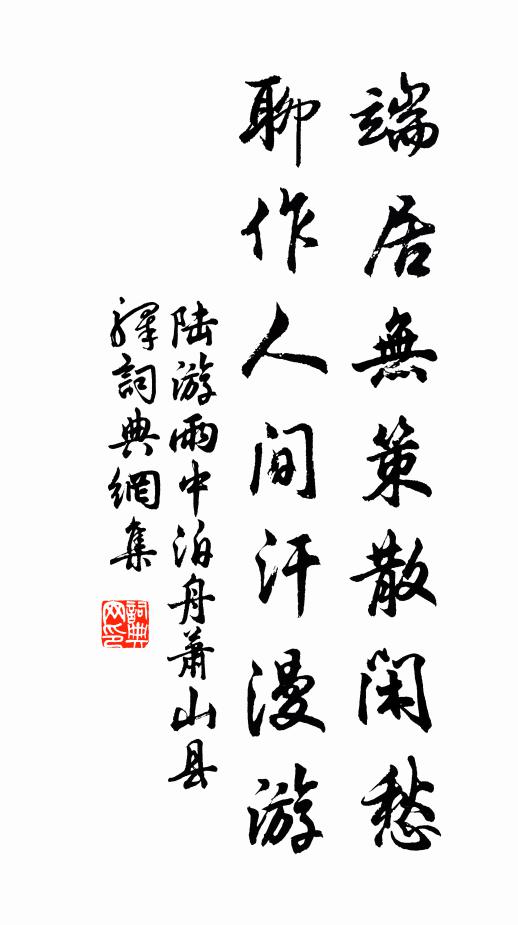 端居無策散閑愁
聊作人間汗漫游
陆游雨中泊舟萧山县
驛詞典網集
詞典网印